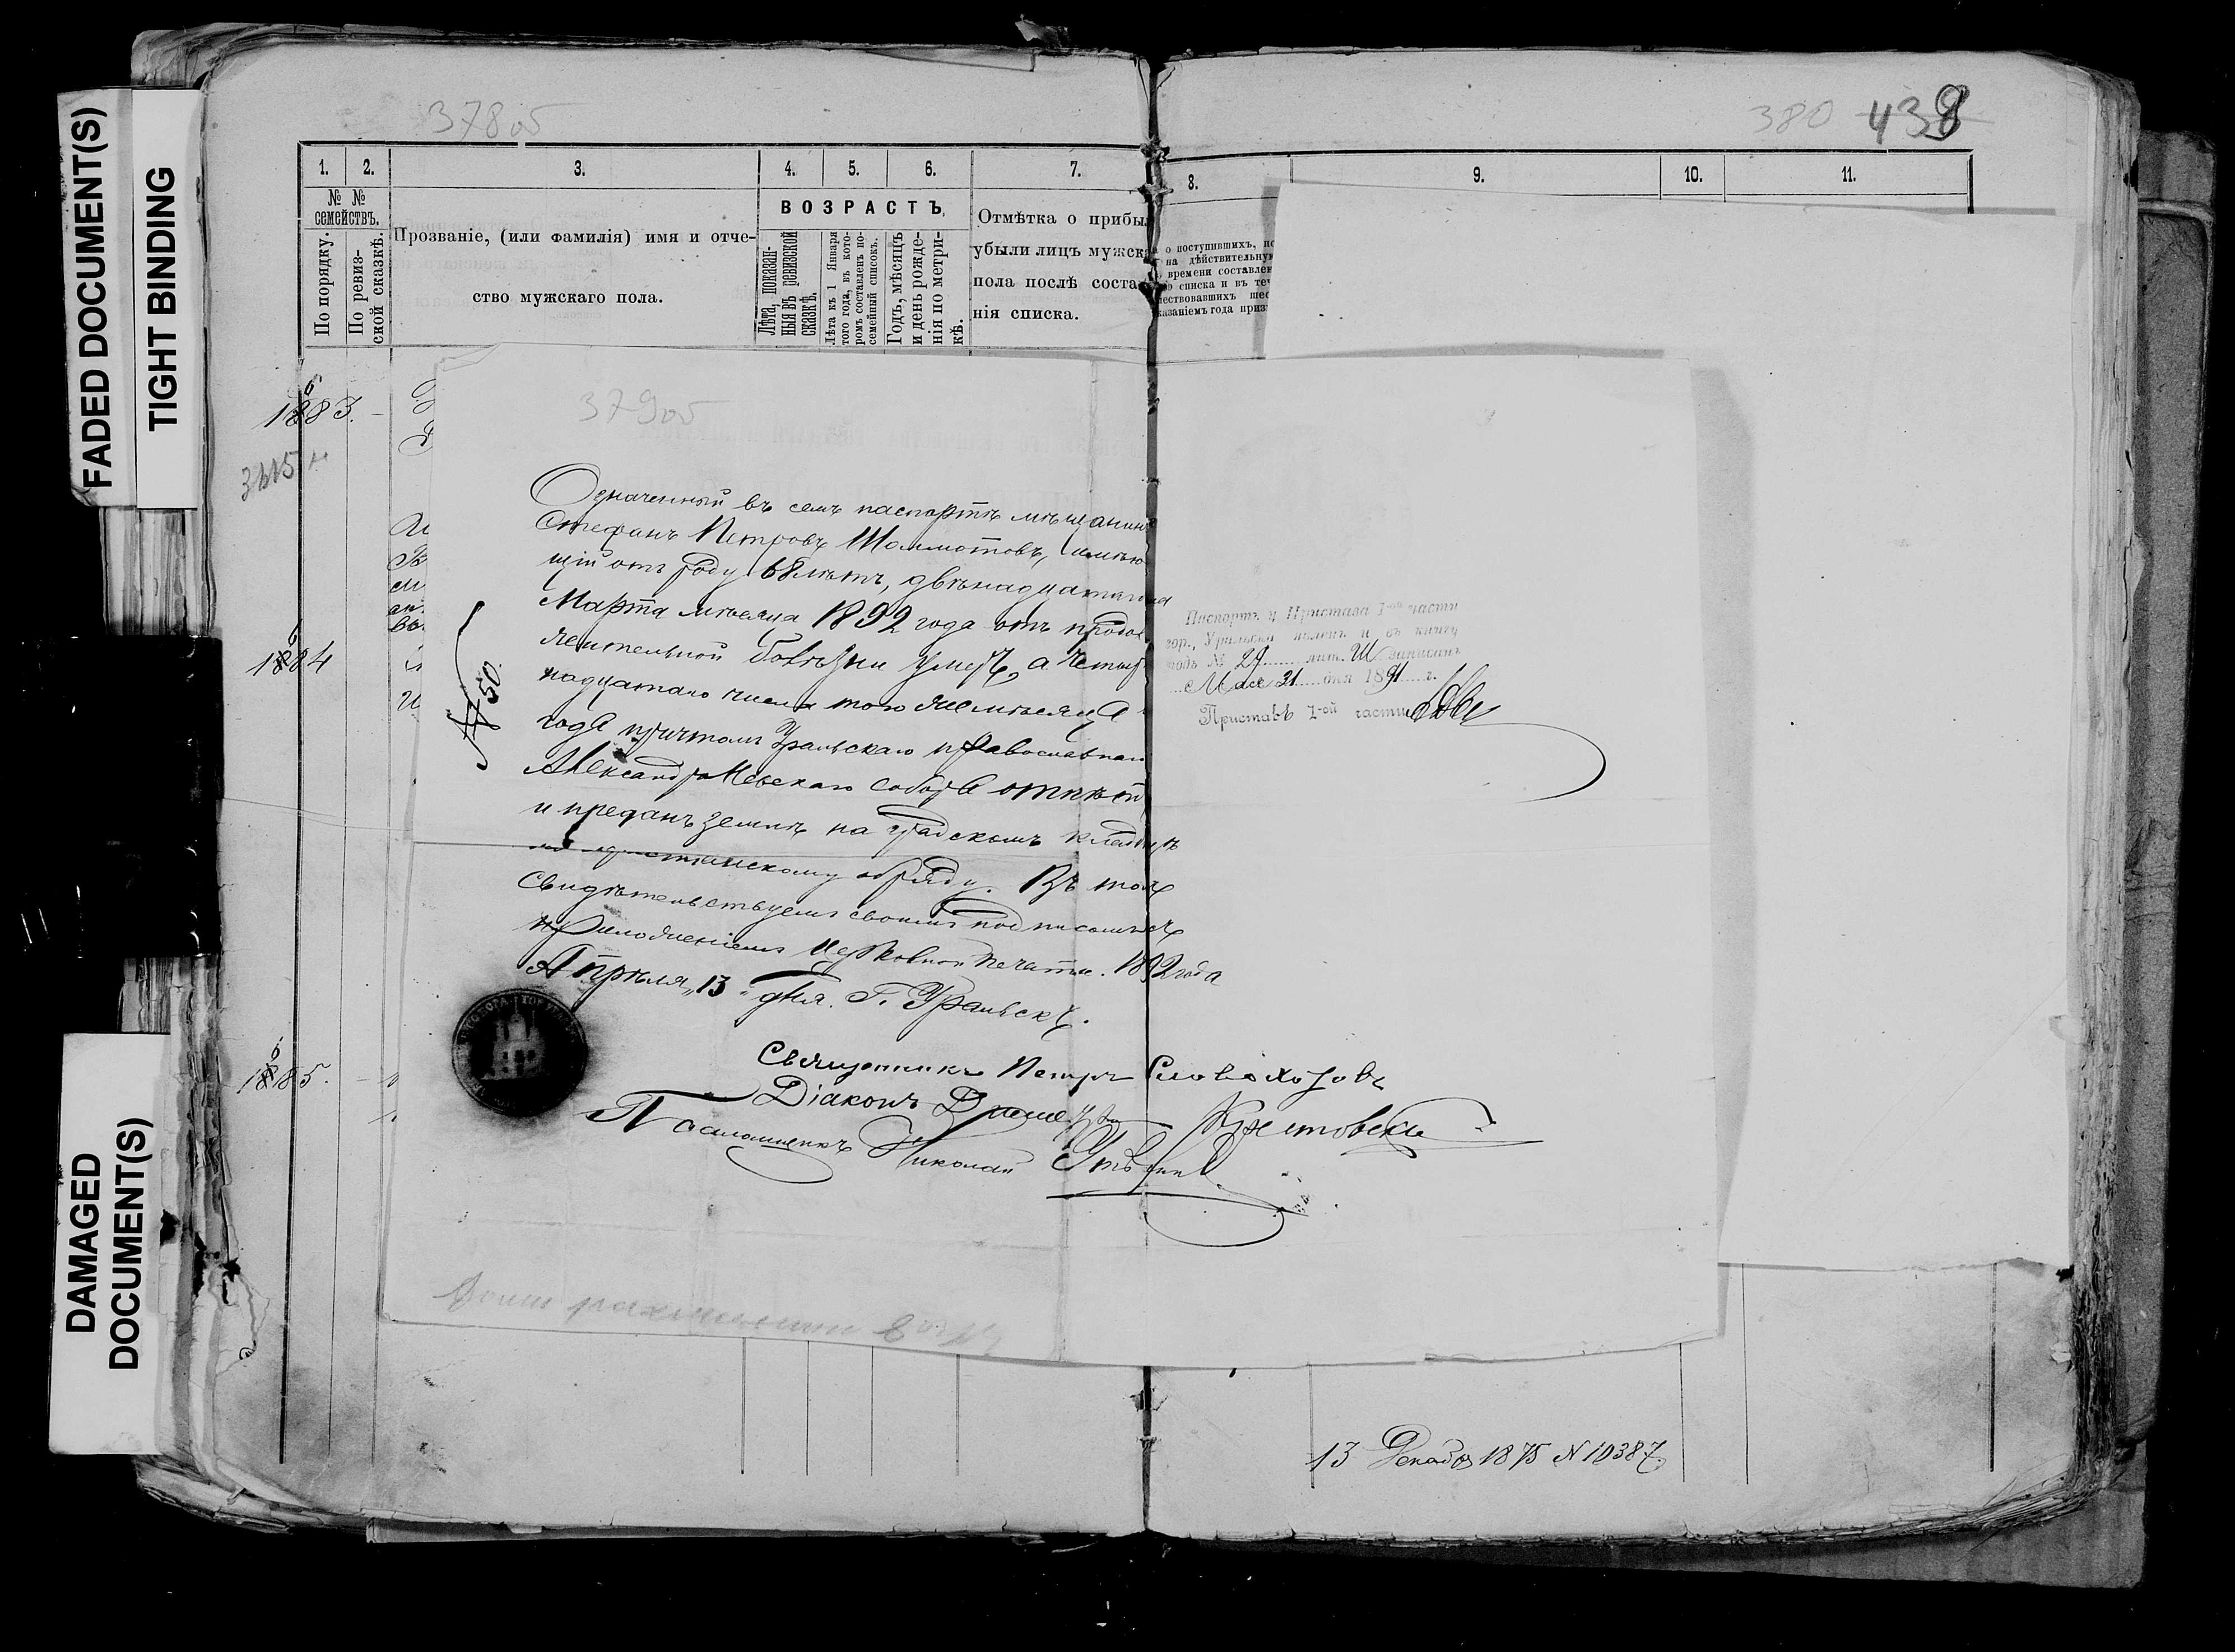 FADED DOCUMENT(S)
TIGHT BINDING
DAMAGED
DOCUMENT(S)
378об
380 438
1. 2. 3. 4. 5. 6. 7. 8. 9. 10. 11.
№ №
семействъ.
По порядку.
По ревиз-
ской сказкѣ.
Прозваніе, (или фамилія) имя и отче-
ство мужскаго пола.
ВОЗРАСТЪ
Лѣта, показан-
ныя въ ревизской
сказкѣ.
Лѣта къ 1 Января
того года, въ кото-
ромъ составленъ по-
семейный списокъ.
Годъ, мѣсяцъ
и день рожде-
нія по метри-
кѣ.
Отмѣтка о прибы
убыли лицъ мужск
пола послѣ соста
нія списка.
о поступившихъ, по
на дѣйствительную
времени составлен
списка и въ теч
шествовавшихъ шес
казаніемъ года приз
1883.
1884
1885.
379об
Означенный въ семъ паспортѣ мѣщанинъ
Стефанъ Петровъ Шолмотовъ, имѣю
щій отъ роду 68 лѣтъ, двѣнадцатаго
Марта мѣсяца 1892 года отъ продол
жительной болѣзни умеръ, а четыр
надцатаго числа того же мѣсяца
года причтомъ Уральскаго православнаго
Александро Невскаго собора отпѣтъ
и преданъ землѣ на градскомъ кладбищѣ
по христіанскому обряду. Въ томъ
свидѣтельствуемъ своимъ подписомъ съ
приложеніемъ церковной печати. 1892 года
Апрѣля „13" дня. Г. Уральскъ.
№ 50.
Священникъ Петръ Словохотовъ
Діаконъ Димитрій Крестовскій
Псаломщикъ Николай
Паспортъ у Пристава 1-ой части
гор. Уральска явленъ и въ книгу
подъ № 29 лит. Ш записанъ
Мая 31 дня 1891 г.
Приставъ 1-ой части
13 Декабря 1875 N 10387.